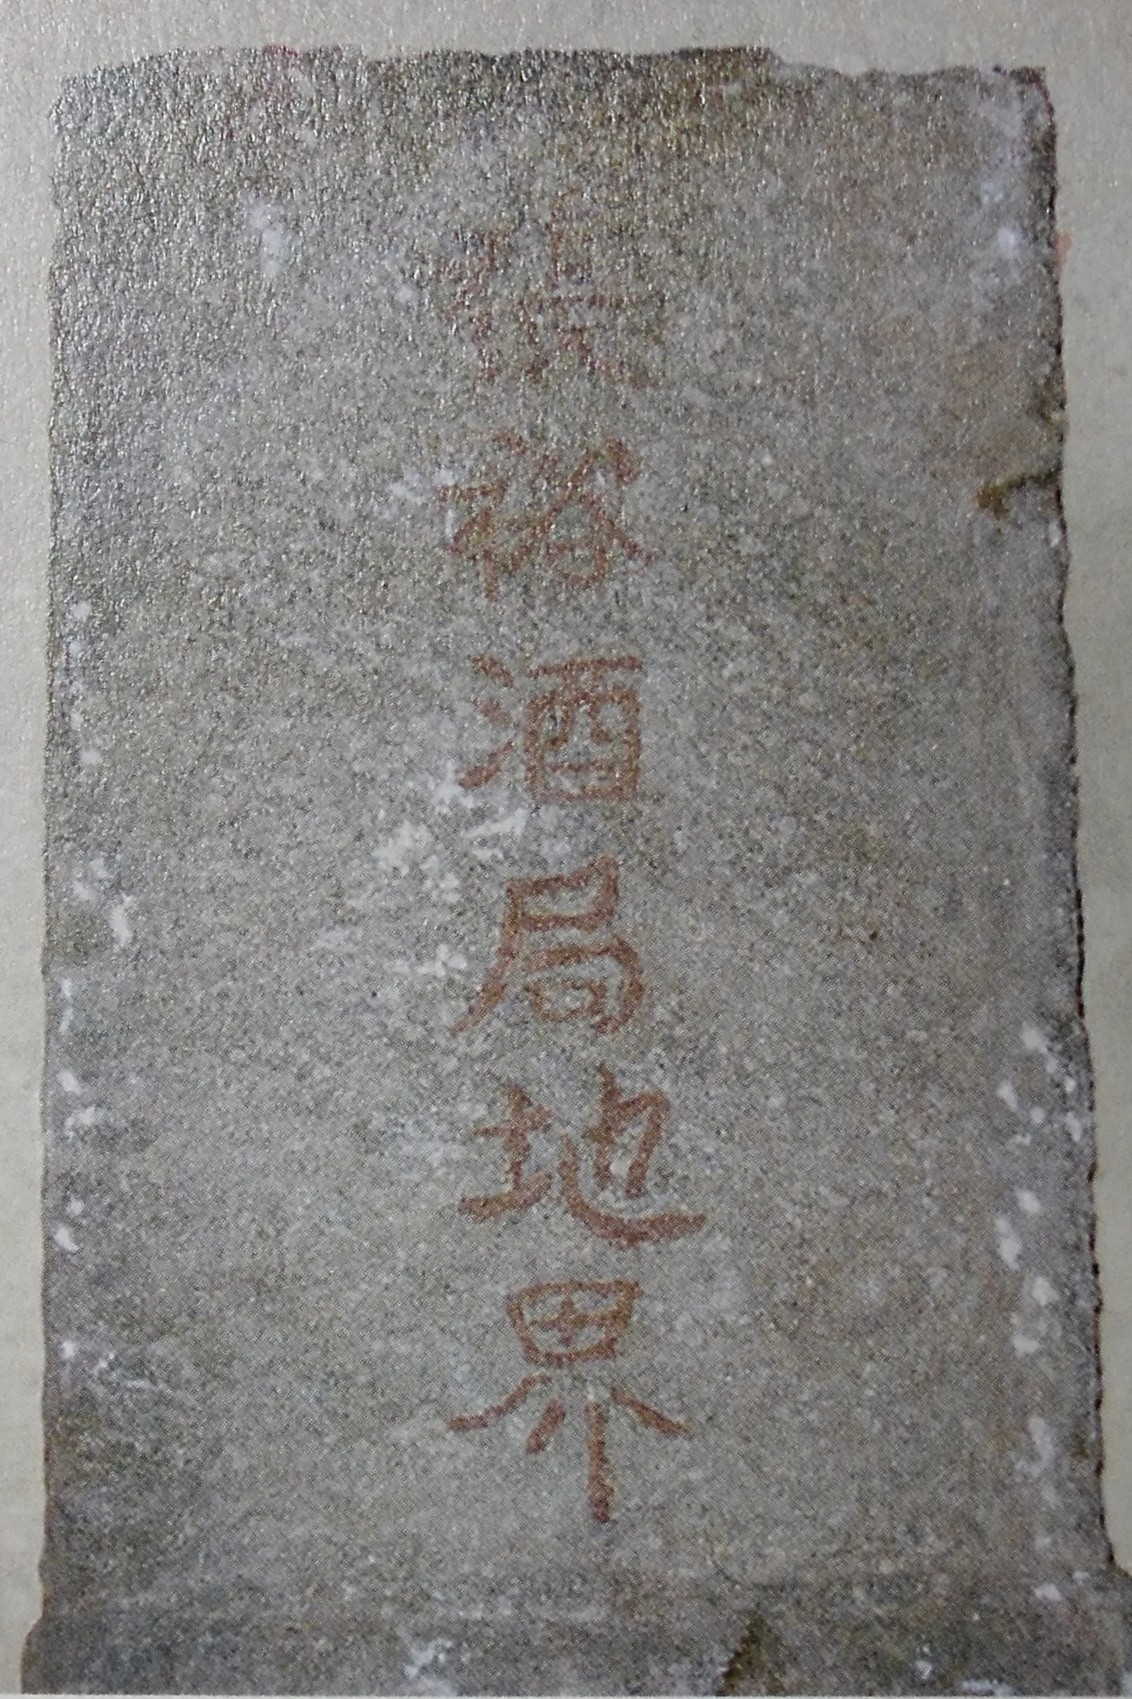 張裕酒局地界